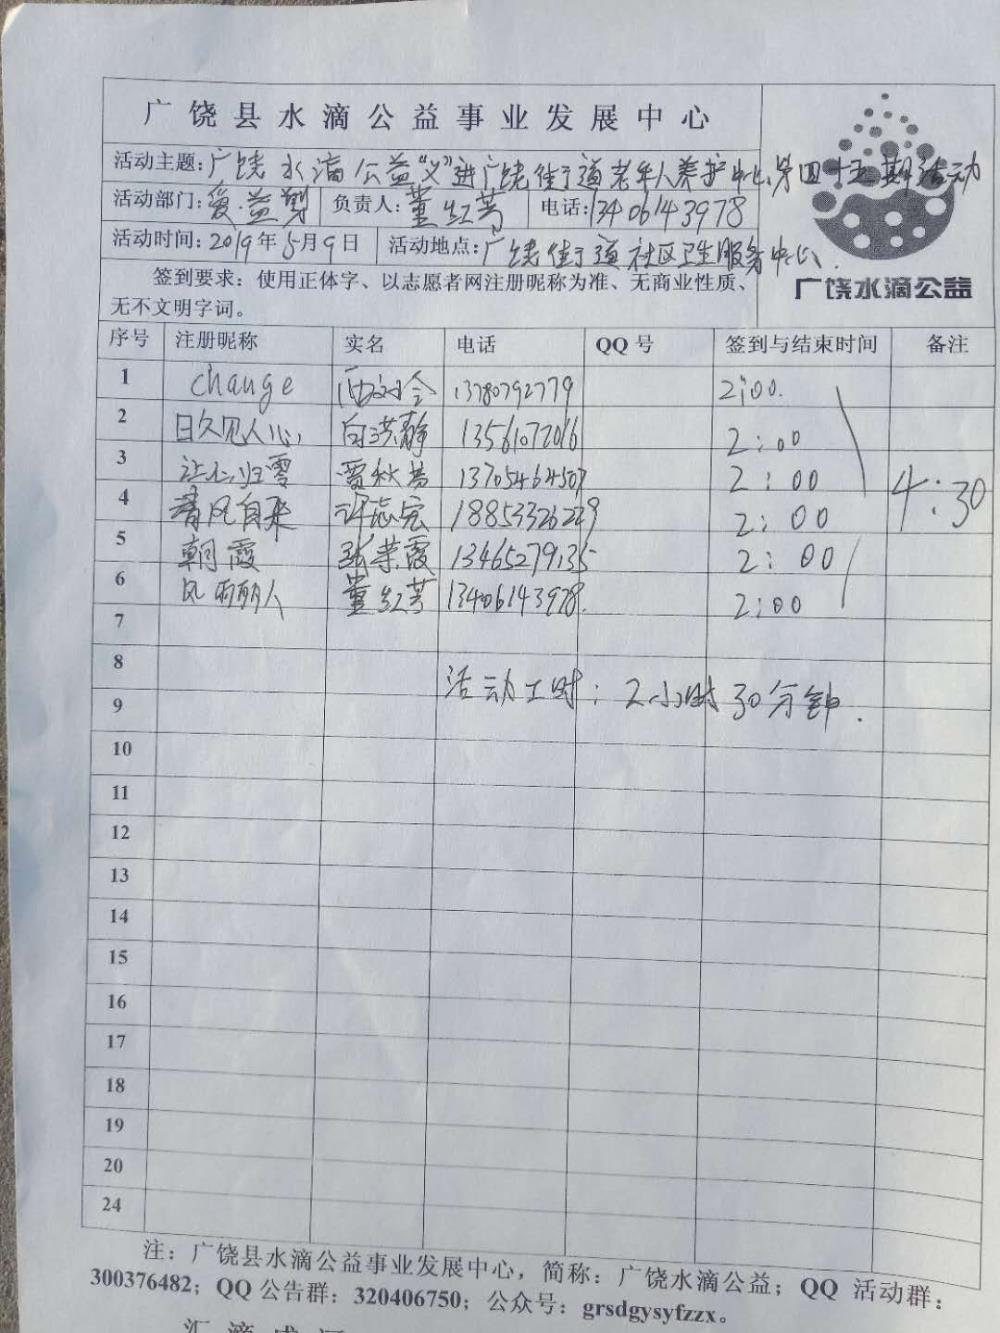 广饶县水滴公益事业发展中心
活动主题:广饶水滴公益"义"进广饶街道老年人养护中心第四十五期活动
活动部门:爱益剪 负责人:董红芳 电话:13406143978
活动时间:2019年5月9日 活动地点:广饶街道社区卫生服务中心.
广饶水滴公益
签到要求:使用正体字、以志愿者网注册昵称为准、无商业性质、
无不文明字词。
序号 注册昵称 实名 电话 QQ号 签到与结束时间 备注
1 change 13780792779 2:00.
2 日久见人心 白洪静 13561072016 2:00
3 让心归零 贾秋芳 13705464507 2:00
4 清风自来 许志宏 18853326229 2:00 4:30
5 朝霞 张荣霞 13465279135 2:00
6 风雨丽人 董红芳 13406143978. 2:00
7
8 活动工时:2小时30分钟.
9
10
11
12
13
14
15
16
17
18
19
20
24
注:广饶县水滴公益事业发展中心,简称:广饶水滴公益;QQ 活动群:
300376482;QQ 公告群:320406750;公众号:grsdgysyfzzx。